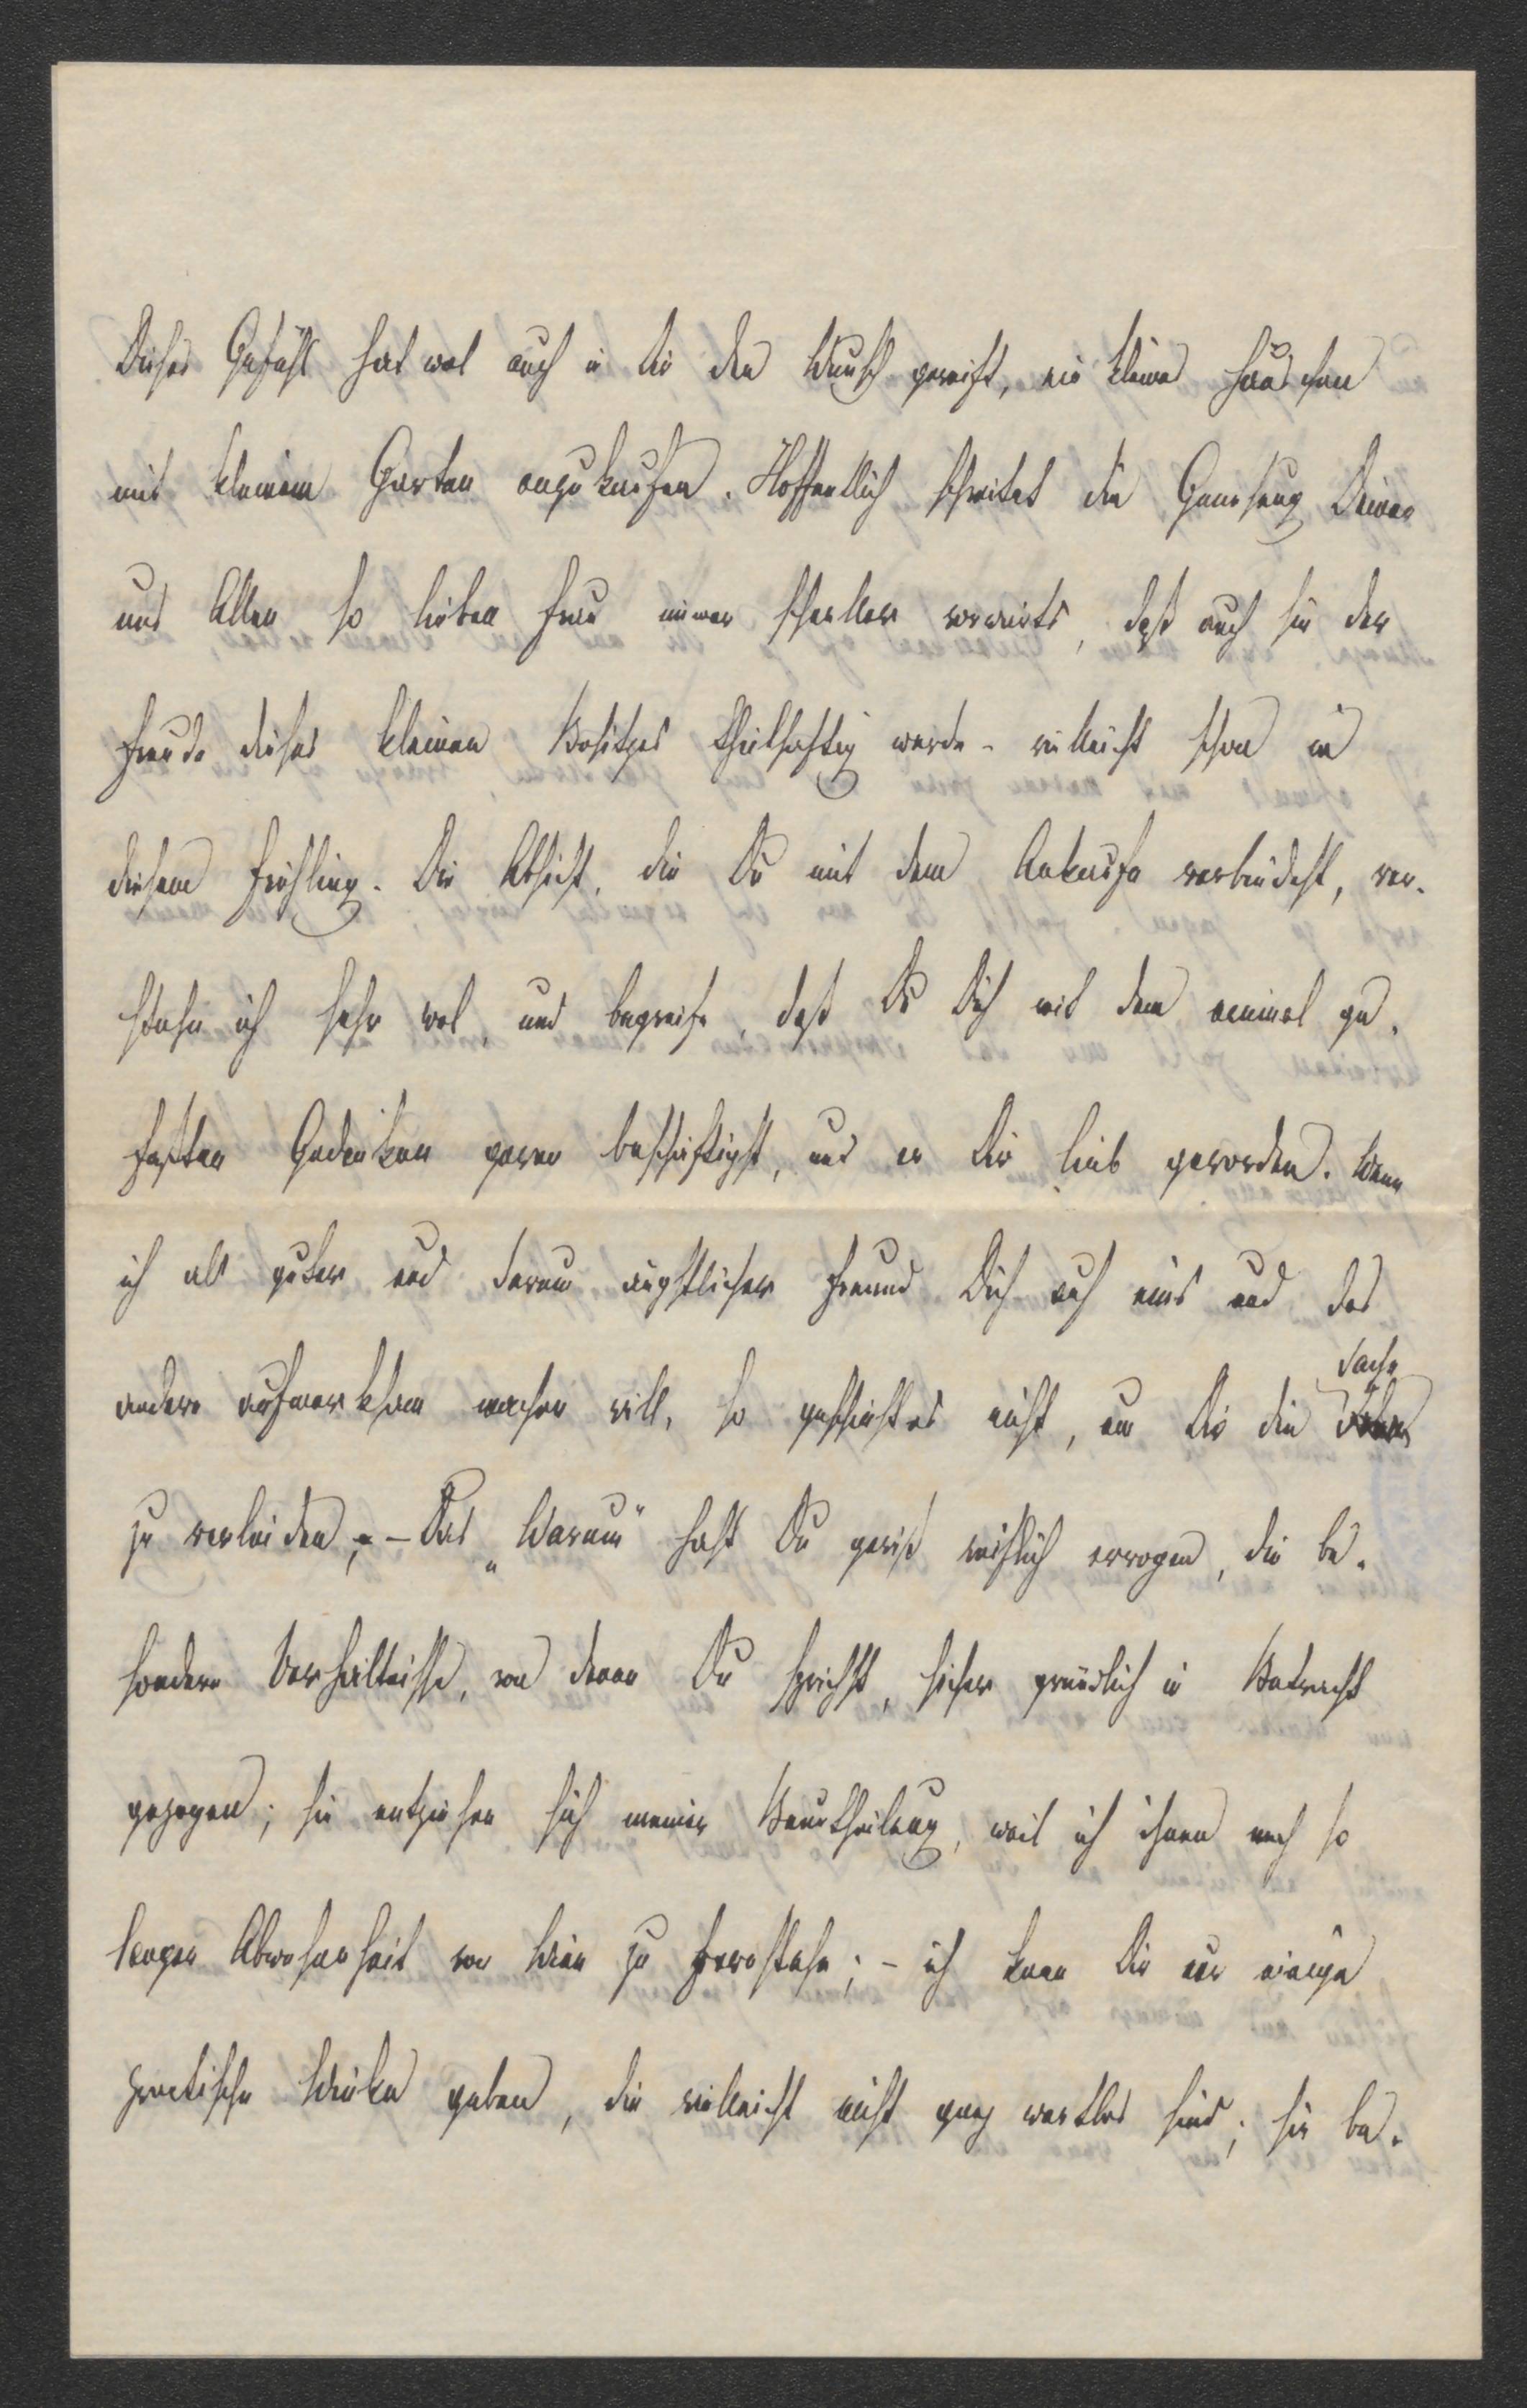 Dieses Gefühl hat wol auch in Dir den Wunsch gereift, ein kleines Häuschen
mit kleinem Garten anzukaufen. Hoffentlich schreitet die Genesung Deiner
uns Allen so lieben Frau immer schneller vorwärts, daß auch sie der
Freude dieses kleinen Besitzes theilhaftig werde – vielleicht schon in
diesem Frühling. Die Absicht, die Du mit dem Ankaufe verbindest, ver-
stehe ich sehr wol, und begreife, daß Du Dich mit dem einmal ge-
faßten Gedanken gerne beschäftigst, und er Dir lieb geworden. Wenn
ich als guter und darum ängstlicher Freund Dich auf eins und das
andere aufmerksam machen will, so geschieht es nicht, um Dir die Sache
zu verleiden; – Das „Warum" hast Du gewiß reiflich erwogen, die be-
sondern Verhältnisse, von denen Du sprichst, sicher gründlich in Betracht
gezogen; sie entziehen sich meiner Beurtheilung, weil ich ihnen nach so
langer Abwesenheit von Wien zu fernstehe; – ich kann Dir nur einige
practische Winke geben, die vielleicht nicht ganz werthlos sind; sie be-